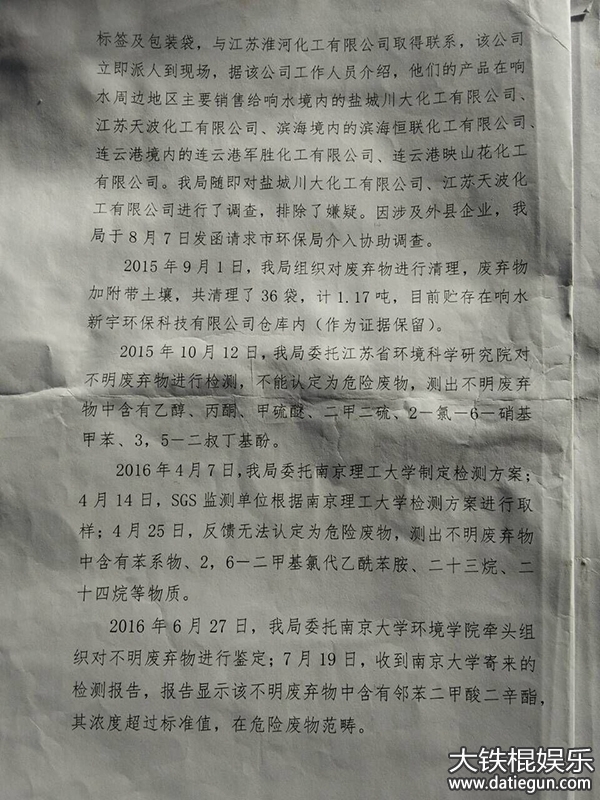 标签及包装袋，与江苏淮河化工有限公司取得联系，该公司
立即派人到现场，据该公司工作人员介绍，他们的产品在响
水周边地区主要销售给响水境内的盐城川大化工有限公司、
江苏天波化工有限公司、滨海境内的滨海恒联化工有限公司、
连云港境内的连云港军胜化工有限公司、连云港映山花化工
有限公司。我局随即对盐城川大化工有限公司、江苏天波化
工有限公司进行了调查，排除了嫌疑。因涉及外县企业，我
局于8月7日发函请求市环保局介入协助调查。
2015年9月1日，我局组织对废弃物进行清理，废弃物
加附带土壤，共清理了36袋，计1.17吨，目前贮存在响水
新宇环保科技有限公司仓库内（作为证据保留）。
2015年10月12日，我局委托江苏省环境科学研究院对
不明废弃物进行检测，不能认定为危险废物，测出不明废弃
物中含有乙醇、丙酮、甲硫醚、二甲二硫、2－氯－6－硝基
甲苯、3，5－二叔丁基酚。
2016年4月7日，我局委托南京理工大学制定检测方案；
4月14日，SGS监测单位根据南京理工大学检测方案进行取
样；4月25日，反馈无法认定为危险废物，测出不明废弃物
中含有苯系物、2，6－二甲基氯代乙酰苯胺、二十三烷、二
十四烷等物质。
2016年6月27日，我局委托南京大学环境学院牵头组
织对不明废弃物进行鉴定；7月19日，收到南京大学寄来的
检测报告，报告显示该不明废弃物中含有邻苯二甲酸二辛酯，
其浓度超过标准值，在危险废物范畴。
大铁棍娱乐
www.datiegun.com